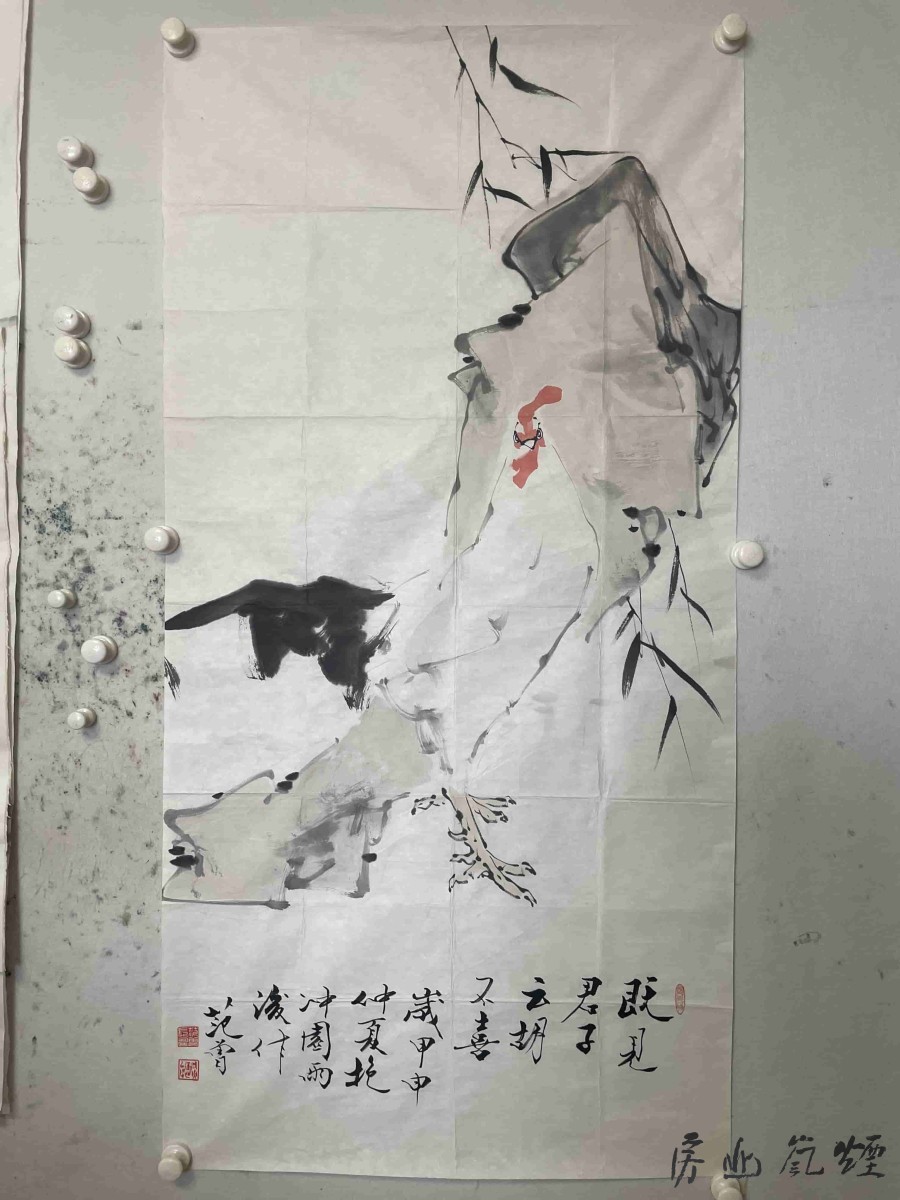 既见
君子
云胡
不喜
歲甲申
仲夏抱
冲園雨
後作
范曾
煙山房